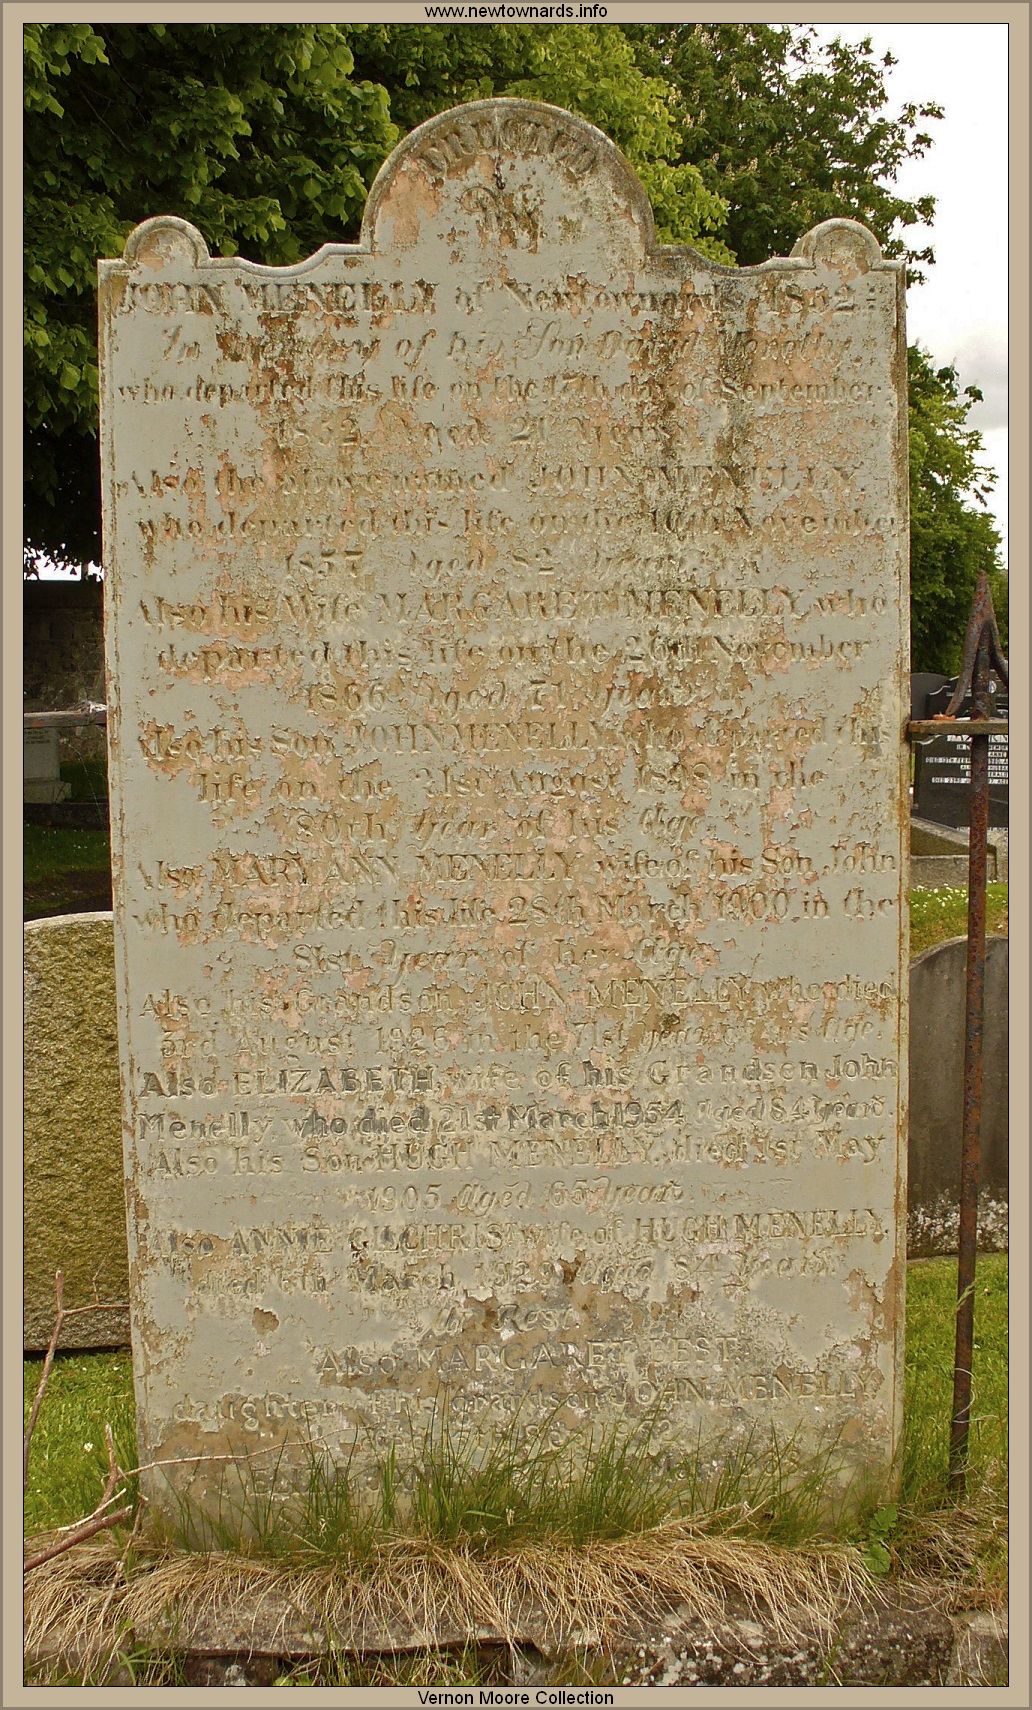 www.newtownards.info
ERECTED
By
JOHN MENELLY of Newtownards 1852
In memory of his Son David Menelly
who departed this life on the 17th day of September
1832, Aged 21 Years.
Also the above named JOHN MENELLY,
who departed this life on the 10th November
1857 Aged 82 Years
Also his Wife MARGARET MENELLY, who
departed this life on the 26th November
1866 Aged 71 Years
Also his Son JOHN MENELLY who departed this
life on the 21st August 1898 in the
80th Year of his Age.
Also MARY ANN MENELLY wife of his Son John
who departed this life 28th March 1900, in the
81st Year of her Age.
Also his Grandson JOHN MENELLY who died
3rd August 1926 in the 71st year of his Age.
Also ELIZABETH, wife of his Grandson John
Menelly, who died 21st March 1954 Aged 84 years.
Also his Son HUGH MENELLY, died 1st May
1905 Aged 65 Years.
Also ANNIE GILCHRIST wife of HUGH MENELLY.
died 6th March 1929 Aged 84 Years.
At Rest.
Also MARGARET
daughter of his Grandson JOHN MENELLY
Vernon Moore Collection